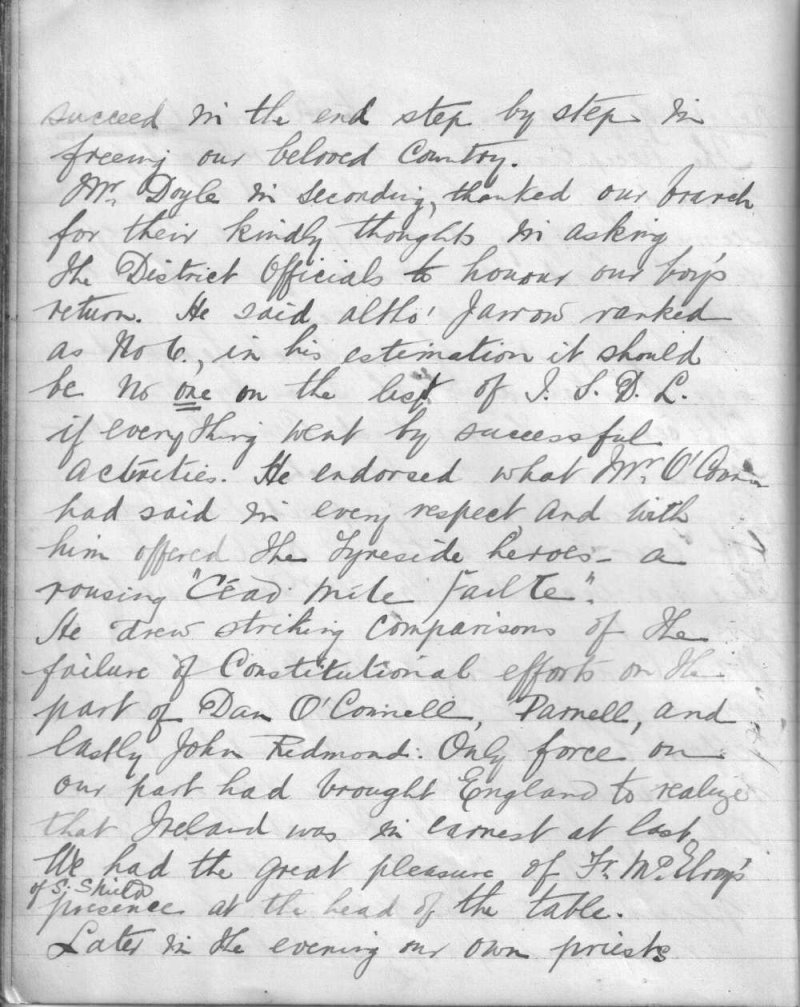 succeed in the end step by step in
freeing our beloved Country.
Mr. Doyle in seconding, thanked our branch
for their kindly thoughts in asking
the District Officials to honour our boy's
return. He said altho' Jarrow ranked
as No 6., in his estimation it should
be No one on the list of I. S. D. L.
if everything went by successful
activities. He endorsed what Mr. O'Connor
had said in every respect and with
him offered the Tyneside heroes - a
rousing "Céad míle Failte".
He drew striking comparisons of the
failure of Constitutional efforts on the
part of Dan O'Connell, Parnell, and
lastly John Redmond. Only force on
our part had brought England to realize
that Ireland was in earnest at last.
We had the great pleasure of Fr. McElroy's
of S. Shields
presence at the head of the table.
Later in the evening our own priests